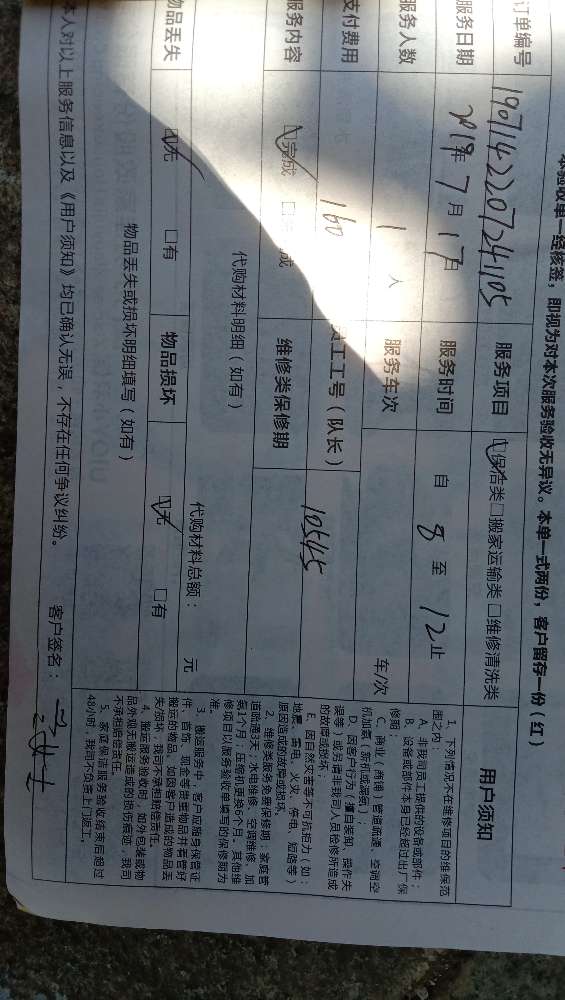 本验收单一经核签，即视为对本次服务验收无异议。本单一式两份，客户留存一份（红）
订单编号 1907142207241105 服务项目 保洁类 □搬家运输类 □维修清洗类
服务日期 2019年7月17日 服务时间 自 8 至 12 止
服务人数 1 人 服务车次 车/次
支付费用 160 员工工号（队长） 10545
服务内容 完成 □ 成 维修类保修期
代购材料明细（如有）
代购材料总额： 元
物品丢失 无 □有 物品损坏 无 □有
物品丢失或损坏明细填写（如有）
本人对以上服务信息以及《用户须知》均已确认无误，不存在任何争议纠纷。 客户签名：
用户须知
1、下列情况不在维修项目的维保范
围之内：
A、非我司员工提供的设备或部件；
B、设备或部件本身已经超过出厂保
修期；
C、商用（商铺）管道疏通、空调空
机加氨（新机或深度）；
D、因客户行为（擅自装卸、操作失
误等）或另请非我司人员检修所造成
的故障或损坏；
E、因自然灾害等不可抗拒力（如：
地震、雷击、火灾、停电、短路等）
原因造成的故障或损坏。
2、维修类服务免费保修期：家庭管
道疏通3天；水电维修、空调维修、加
氨1个月；压缩机更换6个月。其他维
修项目以服务验收单填写的保修期为
准。
3、搬运服务中，客户应随身保管证
件、首饰、现金等贵重物品并看管好
搬运的物品。如因客户造成的物品丢
失/损坏，我司不承担赔偿责任。
4、搬运服务验收时，如外包装或物
品外观无搬运造成的损伤痕迹，我司
不承担赔偿责任。
5、家庭保洁服务验收结束后超过
48小时，我司不负责上门返工。